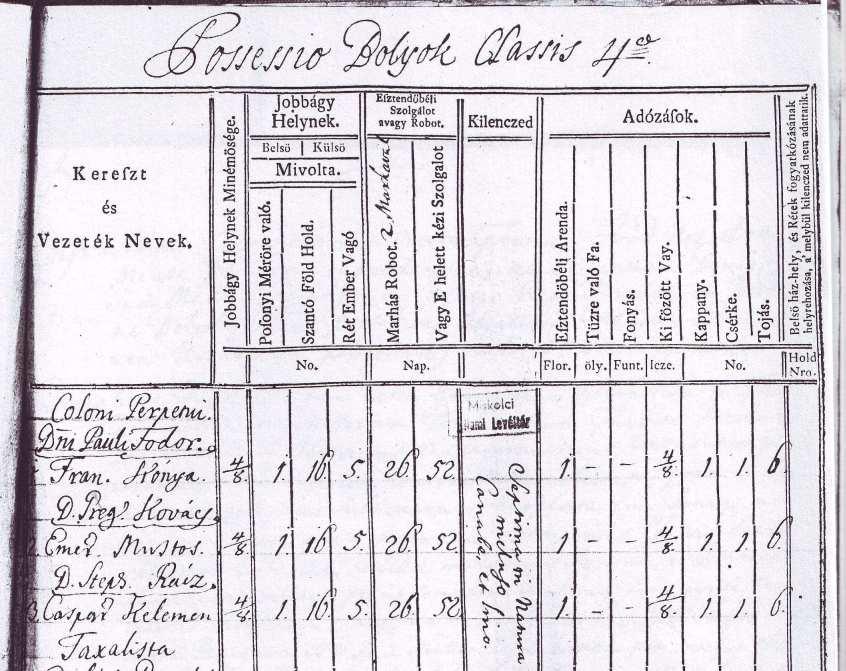 Possessio Dolyok Classis 4
Kereszt
és
Vezeték Nevek.
Jobbágy Helynek Minémösége.
Jobbágy
Helynek.
Belsö Külsö
Mivolta.
Posonyi Méröre való.
Szantó Föld Hold.
Rét Ember Vagó
Esztendöbéli
Szolgálot
avagy Robot.
Marhás Robot. 2
Vagy E helett kézi Szolgalot
Kilenczed
Adózások.
Esztendöbéli Arenda.
Tüzre való Fa.
Fonyás.
Ki fözött Vay.
Kappany.
Csérke.
Tojás.
Belsö ház-hely, és Rétek fogyatkozásának
helyrehozása, a' melybül kilenczed nem adattatik.
No. Nap. Flor. öly. Funt. Icze. No. Hold
Nro.
Coloni Perpetui.
Dni Pauli Fodor.
Miskolci
Levéltár
1. Fran. Kónya. 4/8 1. 16 5. 26 52 1. – – 4/8 1. 1. 6.
D. Greg. Kovács.
2. Emer. Mustos. 4/8 1. 16 5. 26. 52. 1. – – 4/8 1. 1. 6.
D. Steph. Rácz.
3. Caspar Kelemen 4/8 1. 16. 5. 26 52 1. – – 4/8. 1. 1. 6.
in Natura
Canabe, et lino.
Taxalista